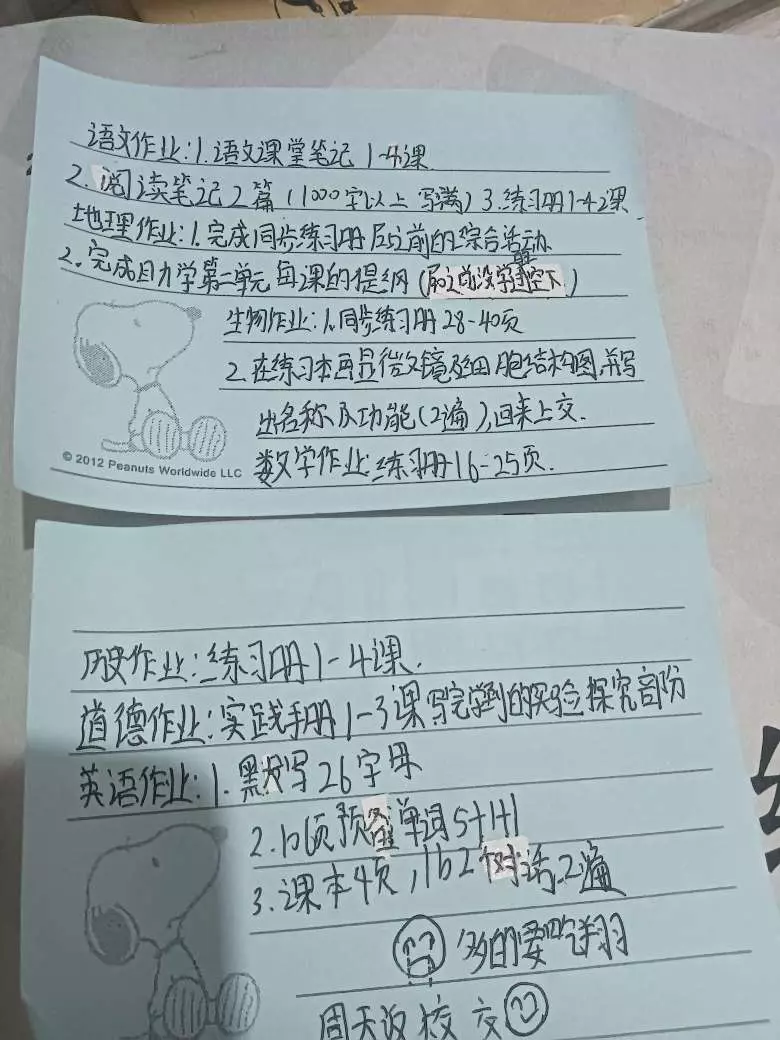 语文作业:1.语文课堂笔记 1-4课
2.阅读笔记2篇(1000字以上 写满)3.练习册1-42课
地理作业:1.完成同步练习册 反之前的综合活动
2.完成目力学第一单元 每课的提纲(反之前没学 空下)
生物作业:1.同步练习册28-40页
2.在练习本画显微镜及细胞结构图,并写
出名称及功能(2遍),回来上交.
© 2012 Peanuts Worldwide LLC
数学作业:练习册16-25页.
历史作业:练习册1-4课.
道德作业:实践手册1-3课写完学到的实验探究部份
英语作业:1.默写26字母
2.10页预备单词5+1+1
3.课本4页,1b 2个对话.2遍
多的要吃翔
周天返校交